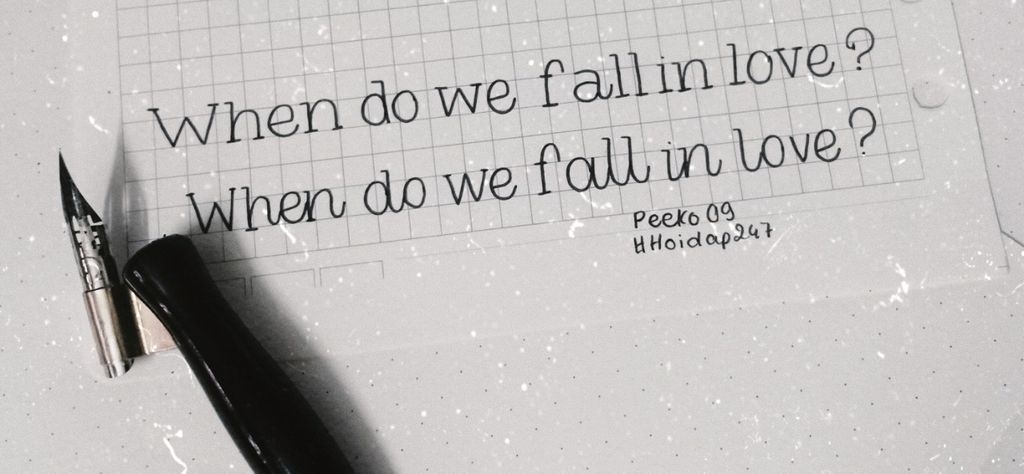 When do we fall in love?
When do we fall in love?
Peeko 09
#Hoidap247